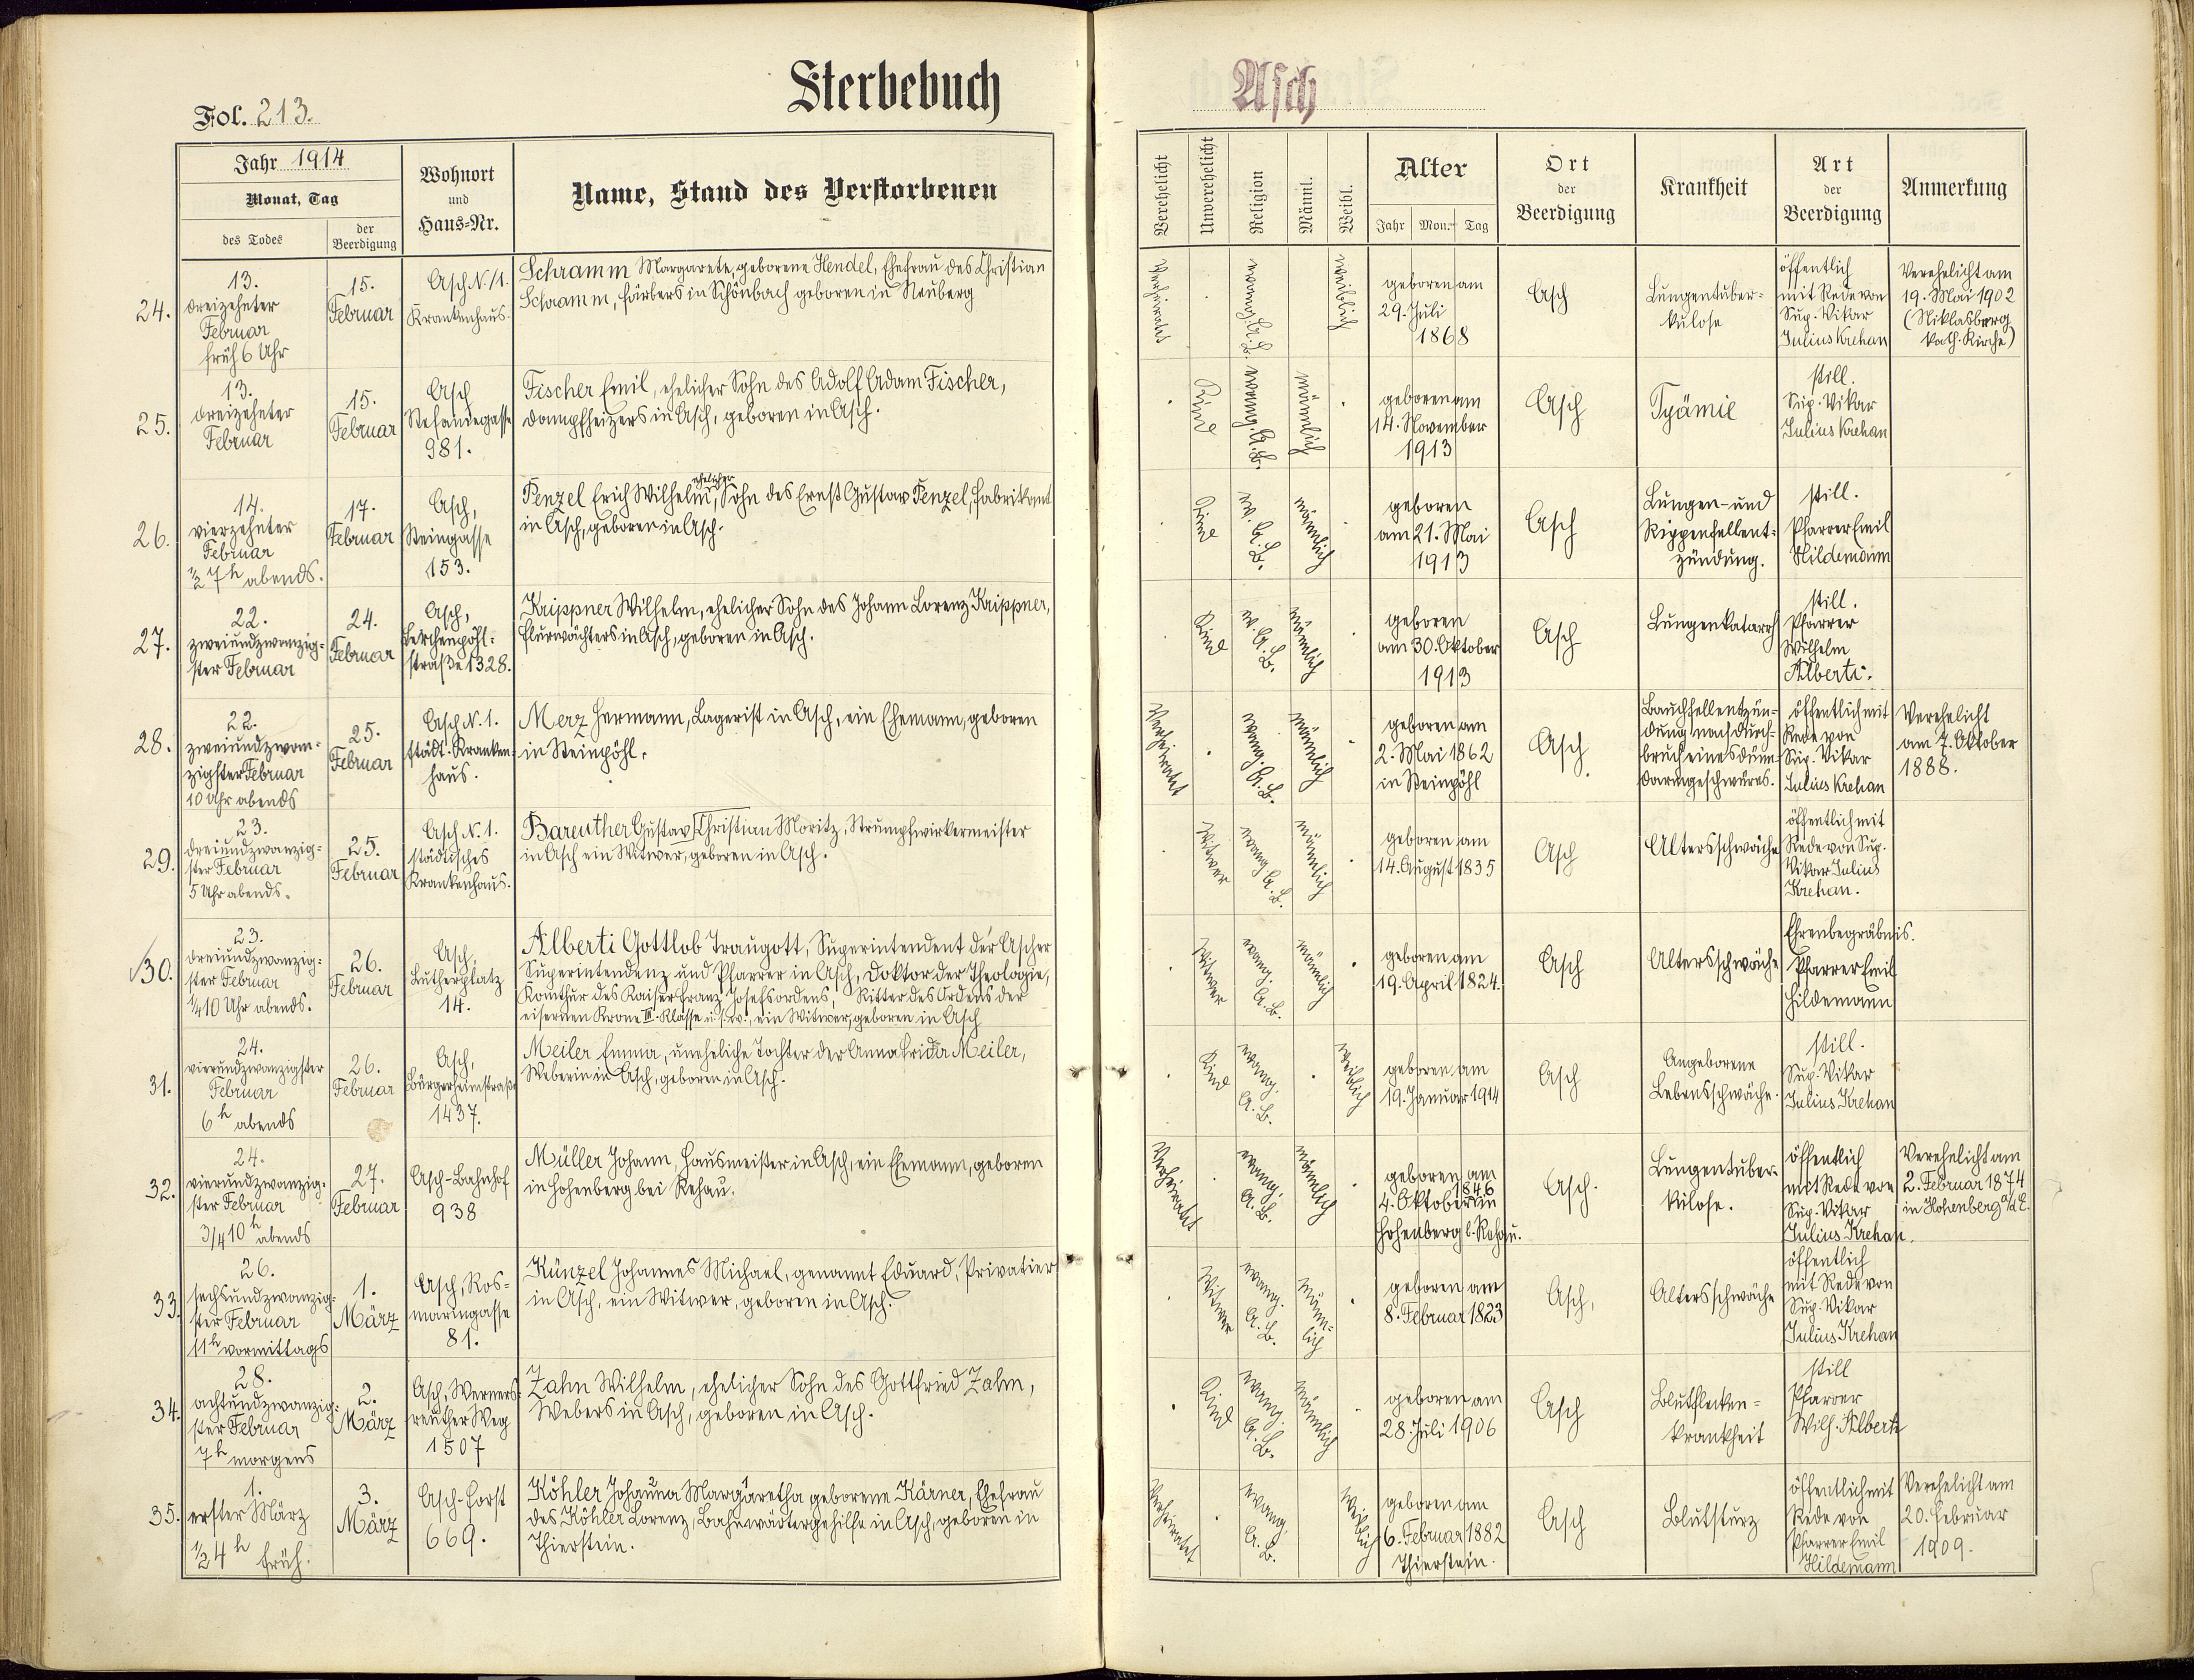 Sterbebuch
Asch
Fol. 213.
Jahr 1914
Monat, Tag
des Todes
der
Beerdigung
Wohnort
und
Haus=Nr.
Name, Stand des Verstorbenen
Verehelicht
Unverehelicht
Religion
Männl.
Weibl.
Alter
Jahr
Mon.
Tag
Ort
der
Beerdigung
Krankheit
Art
der
Beerdigung
Anmerkung
24.
13.
dreizehnter
Februar
früh 6 Uhr
15.
Februar
Asch N. 1.
Krankenhaus.
Schramm Margarete, geborene Hendel, Ehefrau des Christian
Schramm, Färbers in Schönbach geboren in Neuberg
Verheiratet
evang. A. B.
weiblich
geboren am
29. Juli
1868
Asch
Lungentuber=
kulose
öffentlich
mit Rede von
Sup. Vikar
Julius Krehan
Verehelicht am
19. Mai 1902
(Niklasberg
kath. Kirche)
25.
13.
dreizehnter
Februar
15.
Februar
Asch
Stefaniegasse
981.
Fischer Emil, ehelicher Sohn des Adolf Adam Fischer,
Dampfheizers in Asch, geboren in Asch.
Kind
evang. A. B.
männlich
geboren am
14. November
1913
Asch
Pyämie
still.
Sup. Vikar
Julius Krehan
26.
14.
vierzehnter
Februar
1/2 7 h abends.
17.
Februar
Asch,
Steingasse
153.
Penzel Erich Wilhelm, ehelicher Sohn des Ernst Gustav Penzel, Fabrikant
in Asch, geboren in Asch.
Kind
ev. A. B.
männlich
geboren
am 21. Mai
1913
Asch
Lungen- und
Rippenfellent=
zündung.
still.
Pfarrer Emil
Hildemann
27.
22.
zweiundzwanzig=
ster Februar
24.
Februar
Asch,
Lerchenpöhl=
straße 1328.
Krippner Wilhelm, ehelicher Sohn des Johann Lorenz Krippner,
Flurwächters in Asch, geboren in Asch.
Kind
ev. A. B.
männlich
geboren
am 30. Oktober
1913
Asch
Lungenkatarrh
still.
Pfarrer
Wilhelm
Alberti.
28.
22.
zweiundzwan=
zigster Februar
10 Uhr abends
25.
Februar
Asch N. 1.
städt. Kranken=
haus.
Merz Hermann, Lagerist in Asch, ein Ehemann, geboren
in Steinpöhl.
Verheiratet
evang. A. B.
männlich
geboren am
2. Mai 1862
in Steinpöhl
Asch
Bauchfellentzün=
dung nach Durch=
bruch eines Dünn=
darmgeschwüres.
öffentlich mit
Rede von
Sup. Vikar
Julius Krehan
Verehelicht
am 7. Oktober
1888.
29.
23.
dreiundzwanzig=
ster Februar
5 Uhr abends.
25.
Februar
Asch N. 1.
städtisches
Krankenhaus.
Bareuther Gustav Christian Moritz, Strumpfwirkermeister
in Asch ein Witwer, geboren in Asch.
Witwer
evang A. B.
männlich
geboren am
14. August 1835
Asch
Altersschwäche
öffentlich mit
Rede von Sup.
Vikar Julius
Krehan.
30.
23.
dreiundzwanzig=
ster Februar
1/4 10 Uhr abends.
26.
Februar
Asch,
Lutherplatz
14.
Alberti Gottlob Traugott, Superintendent der Ascher
Superintendenz und Pfarrer in Asch, Doktor der Theologie,
Komthur des Kaiser Franz Josefsordens, Ritter des Ordens der
eisernen Krone III. Klasse u. s. w., ein Witwer, geboren in Asch
Witwer
evang. A. B.
männlich
geboren am
19. April 1824.
Asch
Altersschwäche
Ehrenbegräbnis.
Pfarrer Emil
Hildemann
31.
24.
vierundzwanzigster
Februar
6 h abends
26.
Februar
Asch,
Bürgerheimstraße
1437.
Meiler Emma, uneheliche Tochter der Anna Frida Meiler,
Weberin in Asch, geboren in Asch.
Kind
evang. A. B.
weiblich
geboren am
19. Januar 1914
Asch
Angeborene
Lebensschwäche.
still.
Sup. Vikar
Julius Krehan
32.
24.
vierundzwanzig=
ster Februar
3/4 10 h abends
27.
Februar
Asch-Bahnhof
938
Müller Johann, Hausmeister in Asch, ein Ehemann, geboren
in Hohenberg bei Rehau.
Verheiratet
evang. A. B.
männlich
geboren am
4. Oktober 1846 in
Hohenberg b. Rehau.
Asch.
Lungentuber=
kulose.
öffentlich
mit Rede von
Sup. Vikar
Julius Krehan.
Verehelicht am
2. Februar 1874
in Hohenberg a/d E.
33.
26.
sechsundzwanzig=
ster Februar
11 h vormittags
1.
März
Asch, Ros=
maringasse
81.
Künzel Johannes Michael, genannt Eduard, Privatier
in Asch, ein Witwer, geboren in Asch.
Witwer
evang. A. B.
männ=
lich
geboren am
8. Februar 1823
Asch,
Altersschwäche
öffentlich
mit Rede von
Sup. Vikar
Julius Krehan
34.
28.
achtundzwanzig=
ster Februar
7 h morgens
2.
März
Asch, Werners=
reuther Weg
1507
Zahn Wilhelm, ehelicher Sohn des Gottfried Zahn,
Webers in Asch, geboren in Asch.
Kind
evang. A. B.
männlich
geboren am
28. Juli 1906
Asch
Blutflecken=
krankheit
still
Pfarrer
Wilh. Alberti
35.
1.
erster März
1/2 4 h früh.
3.
März
Asch-Forst
669.
Köhler Johanna Margaretha geborene Kärner, Ehefrau
des Köhler Lorenz, Bahnwärtergehilfe in Asch, geboren in
Thierstein.
Verheiratet
evang. A. B.
Weiblich
geboren am
6. Februar 1882
Thierstein.
Asch
Blutsturz
öffentlich mit
Rede von
Pfarrer Emil
Hildemann
Verehelicht am
20. Februar
1909.